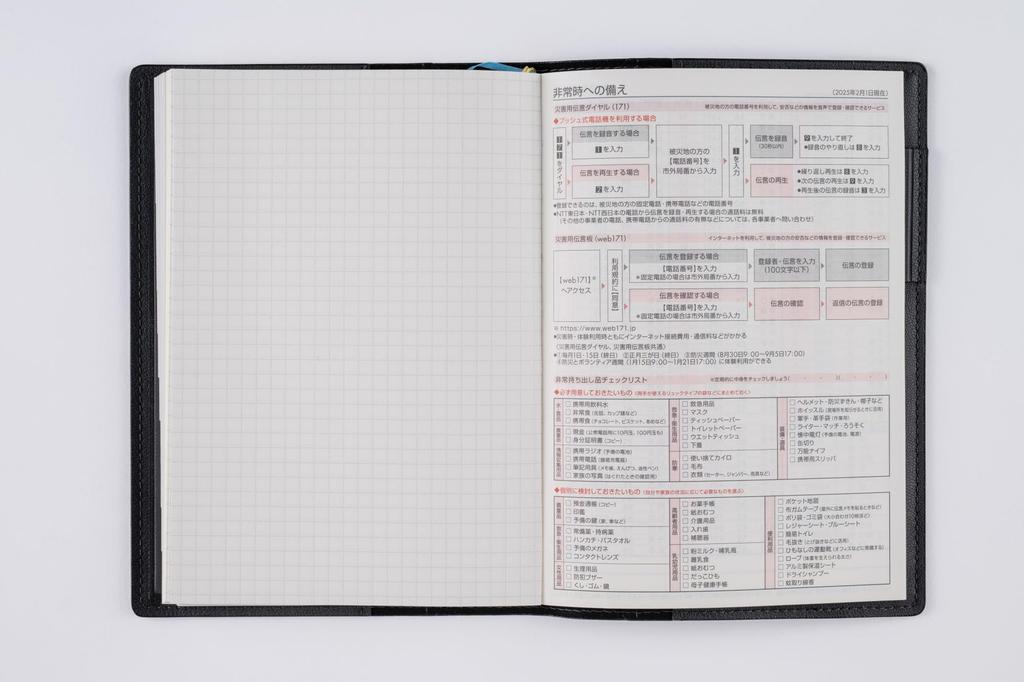 非常時への備え
(2025年2月1日現在)
災害用伝言ダイヤル(171)
被災地の方の電話番号を利用して、安否などの情報を音声で登録・確認できるサービス
◆プッシュ式電話機を利用する場合
171をダイヤル
伝言を録音する場合
1を入力
伝言を再生する場合
2を入力
被災地の方の
【電話番号】を
市外局番から入力
1を入力
伝言を録音
(30秒以内)
9を入力して終了
●録音のやり直しは8を入力
伝言の再生
●繰り返し再生は8を入力
●次の伝言の再生は9を入力
●再生後の伝言の録音は3を入力
●登録できるのは、被災地の方の固定電話・携帯電話などの電話番号
●NTT東日本・NTT西日本の電話から伝言を録音・再生する場合の通話料は無料
(その他の事業者の電話、携帯電話からの通話料の有無などについては、各事業者へ問い合わせ)
災害用伝言板(web171)
インターネットを利用して、被災地の方の安否などの情報を登録・確認できるサービス
【web171】※
へアクセス
利用規約に【同意】
伝言を登録する場合
【電話番号】を入力
＊固定電話の場合は市外局番から入力
登録者・伝言を入力
(100文字以下)
伝言の登録
伝言を確認する場合
【電話番号】を入力
＊固定電話の場合は市外局番から入力
伝言の確認
返信の伝言の登録
※ https://www.web171.jp
●災害時・体験利用時ともにインターネット接続費用・通信料などがかかる
〈災害用伝言ダイヤル、災害用伝言板共通〉
●①毎月1日・15日(終日) ②正月三が日(終日) ③防災週間(8月30日9:00〜9月5日17:00)
④防災とボランティア週間(1月15日9:00〜1月21日17:00)に体験利用ができる
非常持ち出し品チェックリスト
※定期的に中身をチェックしましょう( ・ ・ )( ・ ・ )
◆必ず用意しておきたいもの(両手が使えるリュックタイプの袋などにまとめておく)
水・食品
□携帯用飲料水
□非常食(缶詰、カップ麺など)
□携帯食(チョコレート、ビスケット、あめなど)
貴重品
□現金(公衆電話用に10円玉、100円玉も)
□身分証明書(コピー)
情報収集用品
□携帯ラジオ(予備の電池)
□携帯電話(簡易充電器)
□筆記用具(メモ帳、えんぴつ、油性ペン)
□家族の写真(はぐれたときの確認用)
救急・衛生用品
□救急用品
□マスク
□ティッシュペーパー
□トイレットペーパー
□ウエットティッシュ
□下着
防寒
□使い捨てカイロ
□毛布
□衣類(セーター、ジャンパー、雨具など)
装備・道具
□ヘルメット・防災ずきん・帽子など
□ホイッスル(居場所を知らせるときに活用)
□軍手・革手袋(作業用)
□ライター・マッチ・ろうそく
□懐中電灯(予備の電池、電球)
□缶切り
□万能ナイフ
□携帯用スリッパ
◆個別に検討しておきたいもの(自分や家族の状況に応じて必要なものを選ぶ)
貴重品
□預金通帳(コピー)
□印鑑
□予備の鍵(家、車など)
救急・衛生用品
□常備薬・持病薬
□ハンカチ・バスタオル
□予備のメガネ
□コンタクトレンズ
女性用品
□生理用品
□防犯ブザー
□くし・ゴム・鏡
高齢者用品
□お薬手帳
□紙おむつ
□介護用品
□入れ歯
□補聴器
乳幼児用品
□粉ミルク・哺乳瓶
□離乳食
□紙おむつ
□だっこひも
□母子健康手帳
便利用品
□ポケット地図
□布ガムテープ(屋外に伝言メモを貼るときなど)
□ポリ袋・ゴミ袋(大小合わせ10枚ほど)
□レジャーシート・ブルーシート
□簡易トイレ
□毛抜き(とげ抜きなどに活用)
□ひもなしの運動靴(オフィスなどに常備する)
□ロープ(体重を支えられる太さ)
□アルミ製保温シート
□ドライシャンプー
□蚊取り線香